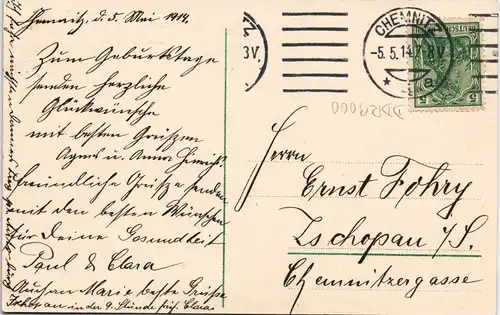 Chemnitz, d. 5. Mai 1914.
Zum Geburtstage
senden herzliche
Glückwünsche
mit besten Grüßen
Agnes u. Anna
freundliche Grüße senden
mit den besten Wünschen
für Deine Gesundheit
Paul & Clara
Marie beste Grüße
Zschopau in der 9. Stunde
CHEMNITZ
-5.5.14.7-8V
a
3V.
5
5
DDR9000
Herrn
Ernst Fohry
Zschopau i/S.
Chemnitzergasse